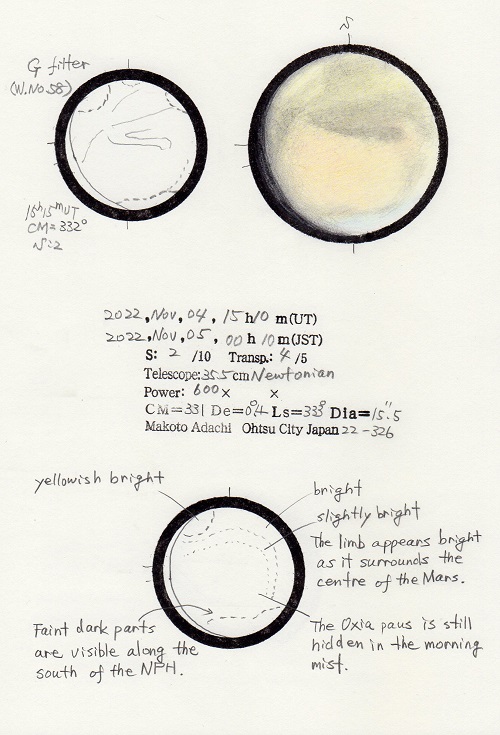 G filter
(W.No.58)
S
15h15mUT
CM=332°
S:2
2022, Nov, 04, 15 h10 m(UT)
2022, Nov, 05, 00 h 10 m(JST)
S: 2 /10 Transp.: 4 /5
Telescope:35.5cm Newtonian
Power: 600× ×
CM=331 De=0.°4 Ls=333° Dia=15."5
Makoto Adachi Ohtsu City Japan 22-326
yellowish bright
bright
slightly bright
The limb appears bright
as it surrounds the
centre of the Mars.
Faint dark parts
are visible along the
south of the NPH.
The Oxia paus is still
hidden in the morning
mist.